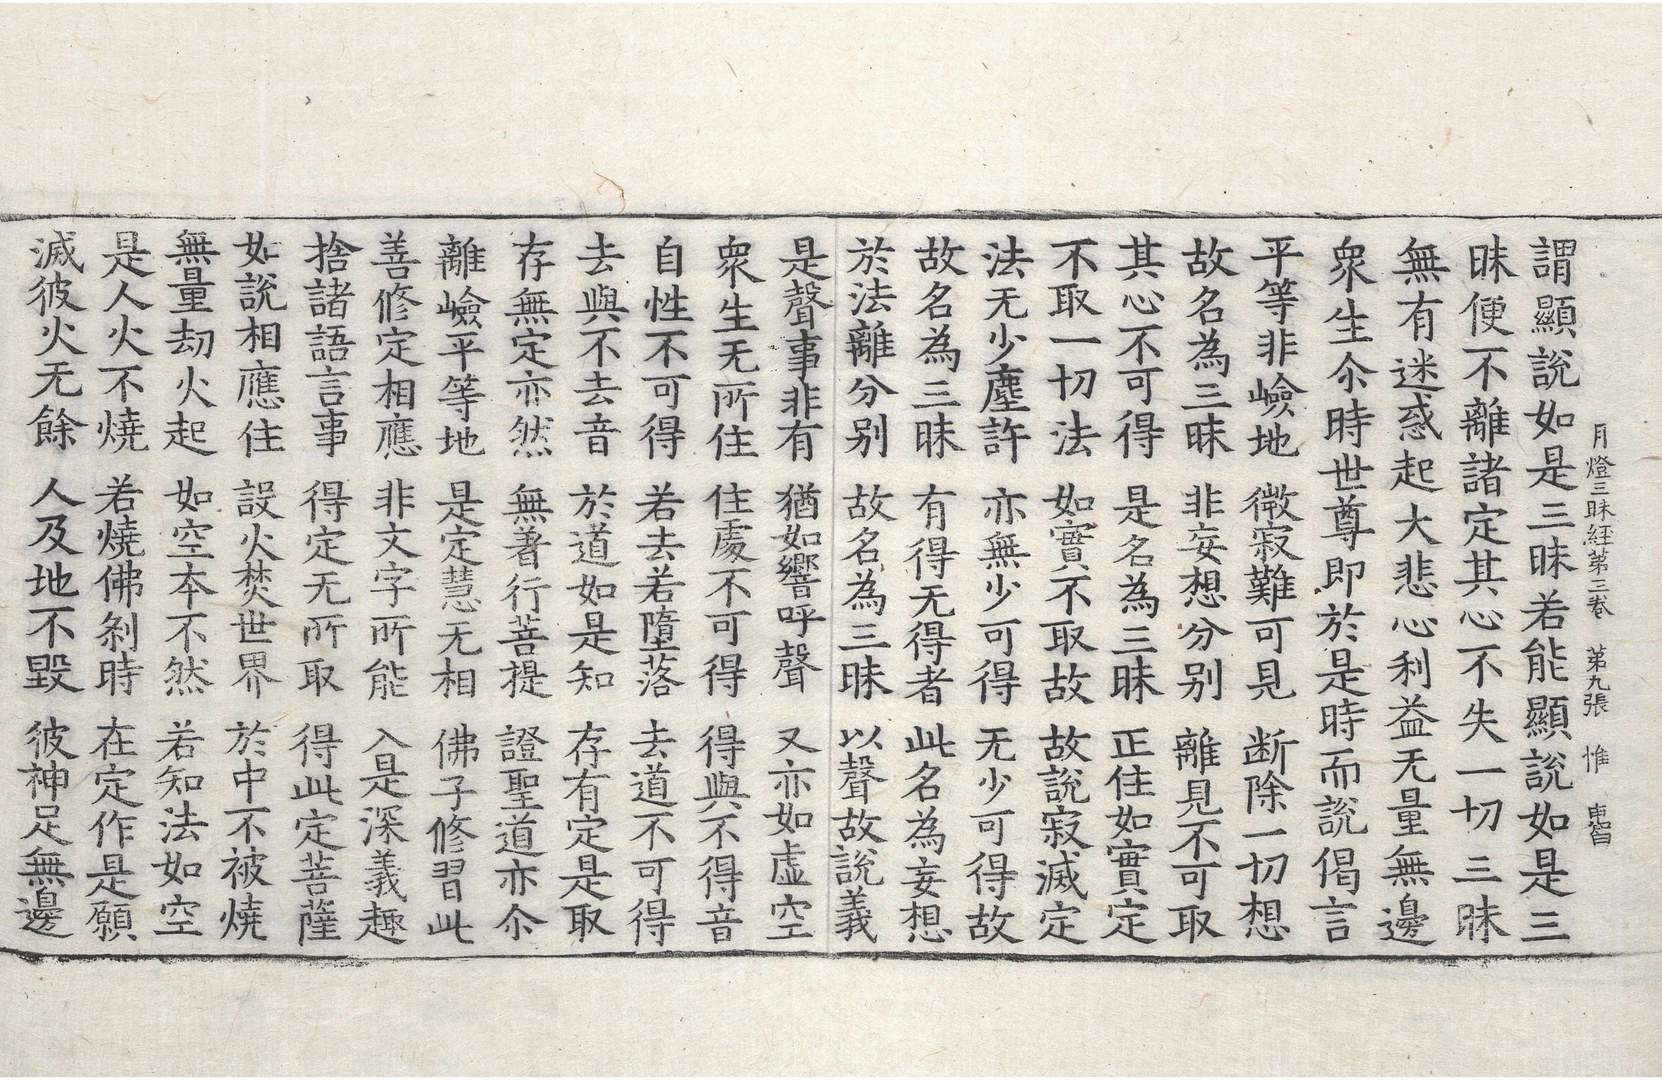 月燈三昧経第三卷　第九張　惟
謂顯說如是三昧若能顯說如是三
昧便不離諸定其心不失一切三昧
無有迷惑起大悲心利益无量無邊
衆生尒時世尊即於是時而說偈言
平等非嶮地　微寂難可見　断除一切想
故名為三昧　非妄想分别　離見不可取
其心不可得　是名為三昧　正住如實定
不取一切法　如實不取故　故說寂滅定
法无少塵許　亦無少可得　无少可得故
故名為三昧　有得无得者　此名為妄想
於法離分别　故名為三昧　以聲故說義
是聲事非有　猶如響呼聲　又亦如虛空
衆生无所住　住處不可得　得與不得音
自性不可得　若去若墮落　去道不可得
去與不去音　於道如是知　存有定是取
存無定亦然　無著行菩提　證聖道亦尒
離嶮平等地　是定慧无相　佛子修習此
善修定相應　非文字所能　入是深義趣
捨諸語言事　得定无所取　得此定菩薩
如說相應住　設火焚世界　於中不被燒
無量劫火起　如空本不然　若知法如空
是人火不燒　若燒佛刹時　在定作是願
滅彼火无餘　人及地不毀　彼神足無邊